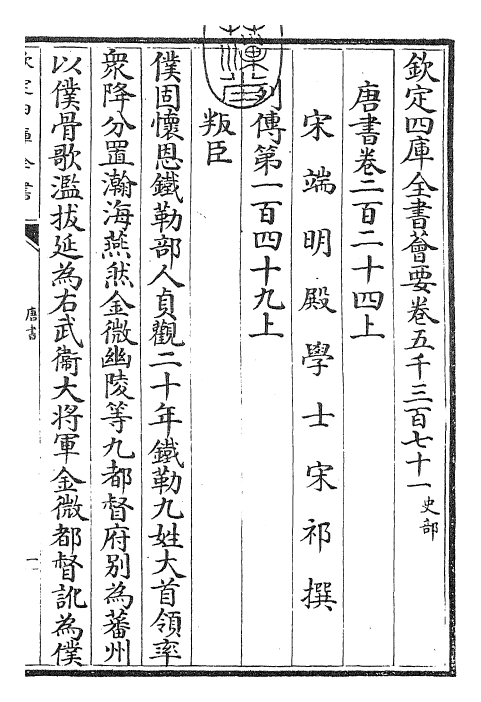 欽定四庫全書薈要卷五千三百七十一 史部
唐書卷二百二十四上
宋端明殿學士宋祁撰
列傳第一百四十九上
叛臣
僕固懷恩鐵勒部人貞觀二十年鐵勒九姓大首領率
衆降分置瀚海燕然金微幽陵等九都督府别為蕃州
以僕骨歌濫拔延為右武衞大將軍金微都督訛為僕
欽定四庫全書
唐書
一